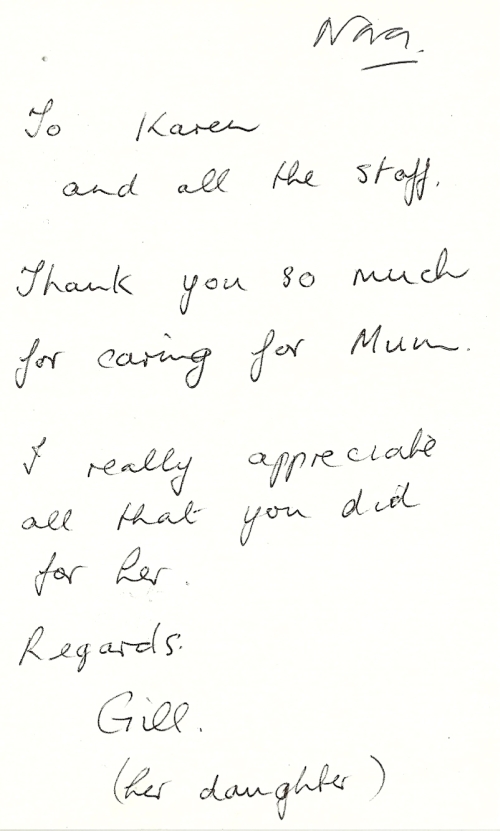 To Karen
and all the staff.
Thank you so much
for caring for Mum.
I really appreciate
all that you did
for her.
Regards.
Gill.
(her daughter)